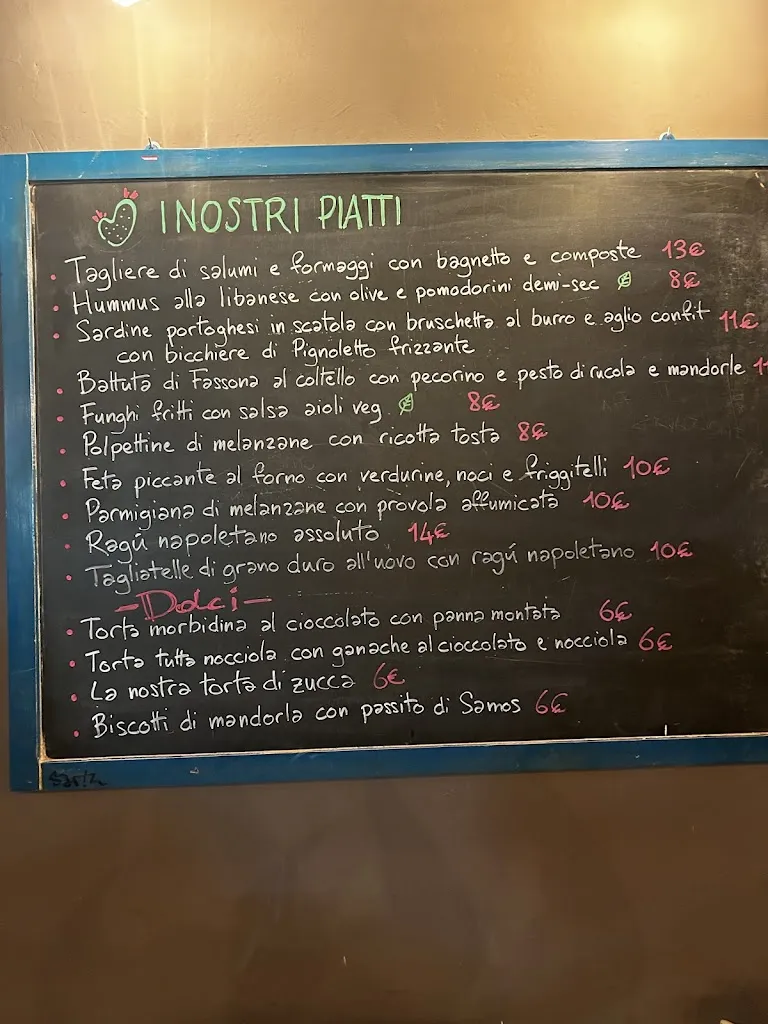 I NOSTRI PIATTI
• Tagliere di salumi e formaggi con bagnetto e composte 13€
• Hummus alla libanese con olive e pomodorini demi-sec 8€
• Sardine portoghesi in scatola con bruschetta al burro e aglio confit 11€
con bicchiere di Pignoletto frizzante
• Battuta di Fassona al coltello con pecorino e pesto di rucola e mandorle
• Funghi fritti con salsa aioli veg 8€
• Polpettine di melanzane con ricotta tosta 8€
• Feta piccante al forno con verdurine, noci e friggitelli 10€
• Parmigiana di melanzane con provola affumicata 10€
• Ragú napoletano assoluto 14€
• Tagliatelle di grano duro all'uovo con ragú napoletano 10€
- Dolci -
• Torta morbidina al cioccolato con panna montata 6€
• Torta tutta nocciola con ganache al cioccolato e nocciola 6€
• La nostra torta di zucca 6€
• Biscotti di mandorla con passito di Samos 6€